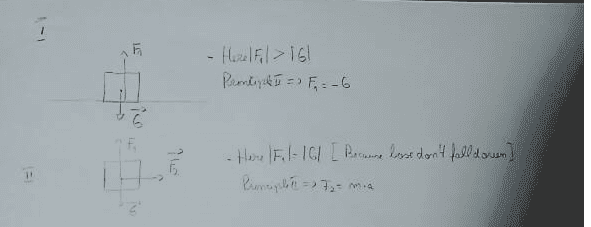 I
F₁
- Here |F₁| > |G|
Principle II => F₁ = -G
G
F₁
F₂
- Here |F₁| = |G| [Because box don't fall down]
II
Principle II => F₂ = m.a
G